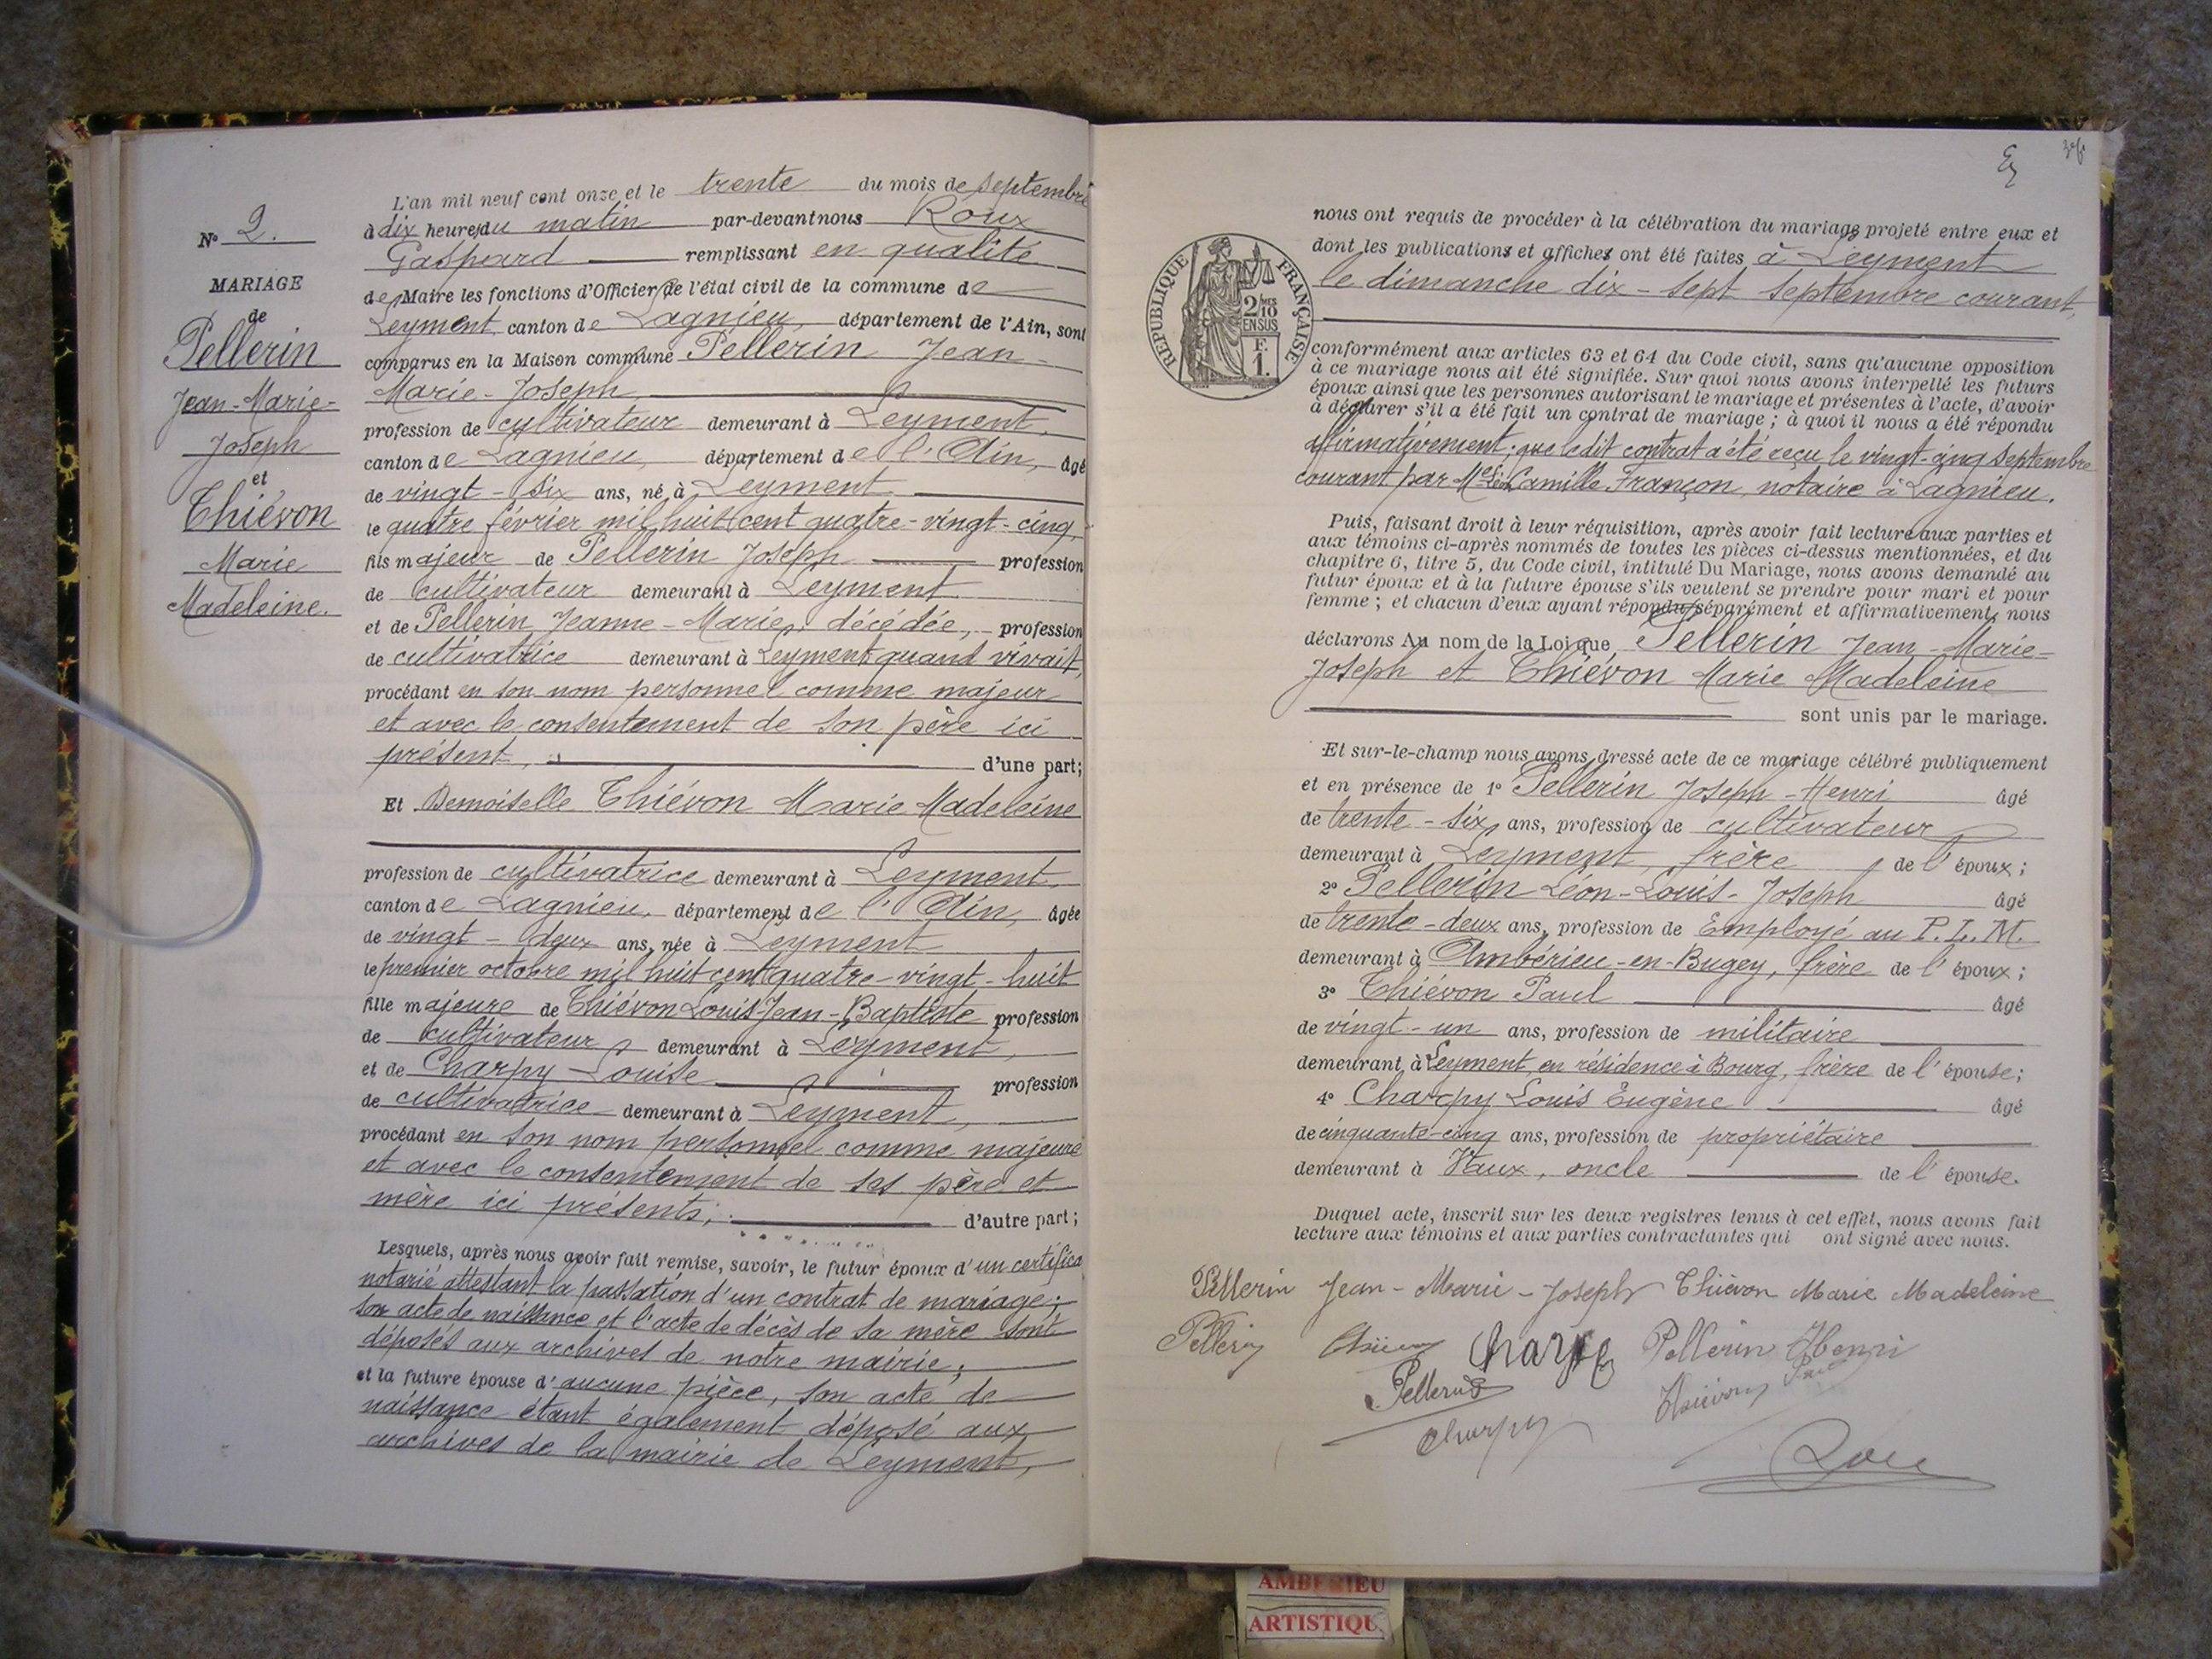 N° 2.
MARIAGE
de
Pellerin
Jean-Marie-
Joseph
et
Thiévon
Marie
Madeleine.
L'an mil neuf cent onze et le trente du mois de septembre
à dix heures du matin par-devant nous Roux
Gaspard remplissant en qualité
de Maire les fonctions d'Officier de l'état civil de la commune de
Leyment canton de Lagnieu, département de l'Ain, sont
comparus en la Maison commune Pellerin Jean-
Marie-Joseph,
profession de cultivateur demeurant à Leyment,
canton de Lagnieu, département de l'Ain, âgé
de vingt-six ans, né à Leyment
le quatre février mil huit cent quatre-vingt-cinq,
fils majeur de Pellerin Joseph profession
de cultivateur demeurant à Leyment
et de Pellerin Jeanne-Marie, décédée, profession
de cultivatrice demeurant à Leyment quand vivait,
procédant en son nom personnel comme majeur
et avec le consentement de son père ici
présent, d'une part;
Et Demoiselle Thiévon Marie Madeleine
profession de cultivatrice demeurant à Leyment,
canton de Lagnieu, département de l'Ain, âgée
de vingt-deux ans, née à Leyment
le premier octobre mil huit cent quatre-vingt-huit
fille majeure de Thiévon Louis Jean-Baptiste profession
de cultivateur demeurant à Leyment,
et de Charpy Louise profession
de cultivatrice demeurant à Leyment,
procédant en son nom personnel comme majeure
et avec le consentement de ses père et
mère ici présents; d'autre part;
Lesquels, après nous avoir fait remise, savoir, le futur époux d'un certifica
notarié attestant la passation d'un contrat de mariage;
son acte de naissance et l'acte de décès de sa mère sont
déposés aux archives de notre mairie;
et la future épouse d'aucune pièce, son acte de
naissance étant également déposé aux
archives de la mairie de Leyment,
RÉPUBLIQUE FRANÇAISE
2/10 MES
EN SUS
F.
1.
nous ont requis de procéder à la célébration du mariage projeté entre eux et
dont les publications et affiches ont été faites à Leyment
le dimanche dix-sept septembre courant,
conformément aux articles 63 et 64 du Code civil, sans qu'aucune opposition
à ce mariage nous ait été signifiée. Sur quoi nous avons interpellé les futurs
époux ainsi que les personnes autorisant le mariage et présentes à l'acte, d'avoir
à déclarer s'il a été fait un contrat de mariage; à quoi il nous a été répondu
affirmativement; que ledit contrat a été reçu le vingt-cinq septembre
courant par Me Léon Camille Françon, notaire à Lagnieu.
Puis, faisant droit à leur réquisition, après avoir fait lecture aux parties et
aux témoins ci-après nommés de toutes les pièces ci-dessus mentionnées, et du
chapitre 6, titre 5, du Code civil, intitulé Du Mariage, nous avons demandé au
futur époux et à la future épouse s'ils veulent se prendre pour mari et pour
femme; et chacun d'eux ayant répondu séparément et affirmativement, nous
déclarons Au nom de la Loi que Pellerin Jean-Marie-
Joseph et Thiévon Marie Madeleine
sont unis par le mariage.
Et sur-le-champ nous avons dressé acte de ce mariage célébré publiquement
et en présence de 1° Pellerin Joseph-Henri âgé
de trente-six ans, profession de cultivateur
demeurant à Leyment, frère de l'époux;
2° Pellerin Léon-Louis-Joseph âgé
de trente-deux ans, profession de Employé au P.L.M.
demeurant à Ambérieu-en-Bugey, frère de l'époux;
3° Thiévon Paul âgé
de vingt-un ans, profession de militaire
demeurant à Leyment, en résidence à Bourg, frère de l'épouse;
4° Charpy Louis Eugène âgé
de cinquante-cinq ans, profession de propriétaire
demeurant à Vaux, oncle de l'épouse.
Duquel acte, inscrit sur les deux registres tenus à cet effet, nous avons fait
lecture aux témoins et aux parties contractantes qui ont signé avec nous.
Pellerin Jean-Marie-Joseph Thiévon Marie Madeleine
Pellerin Thiévon Charpy Pellerin Henri
Pellerin Thiévon Paul
Charpy
Roux
AMBERIEU
ARTISTIQU